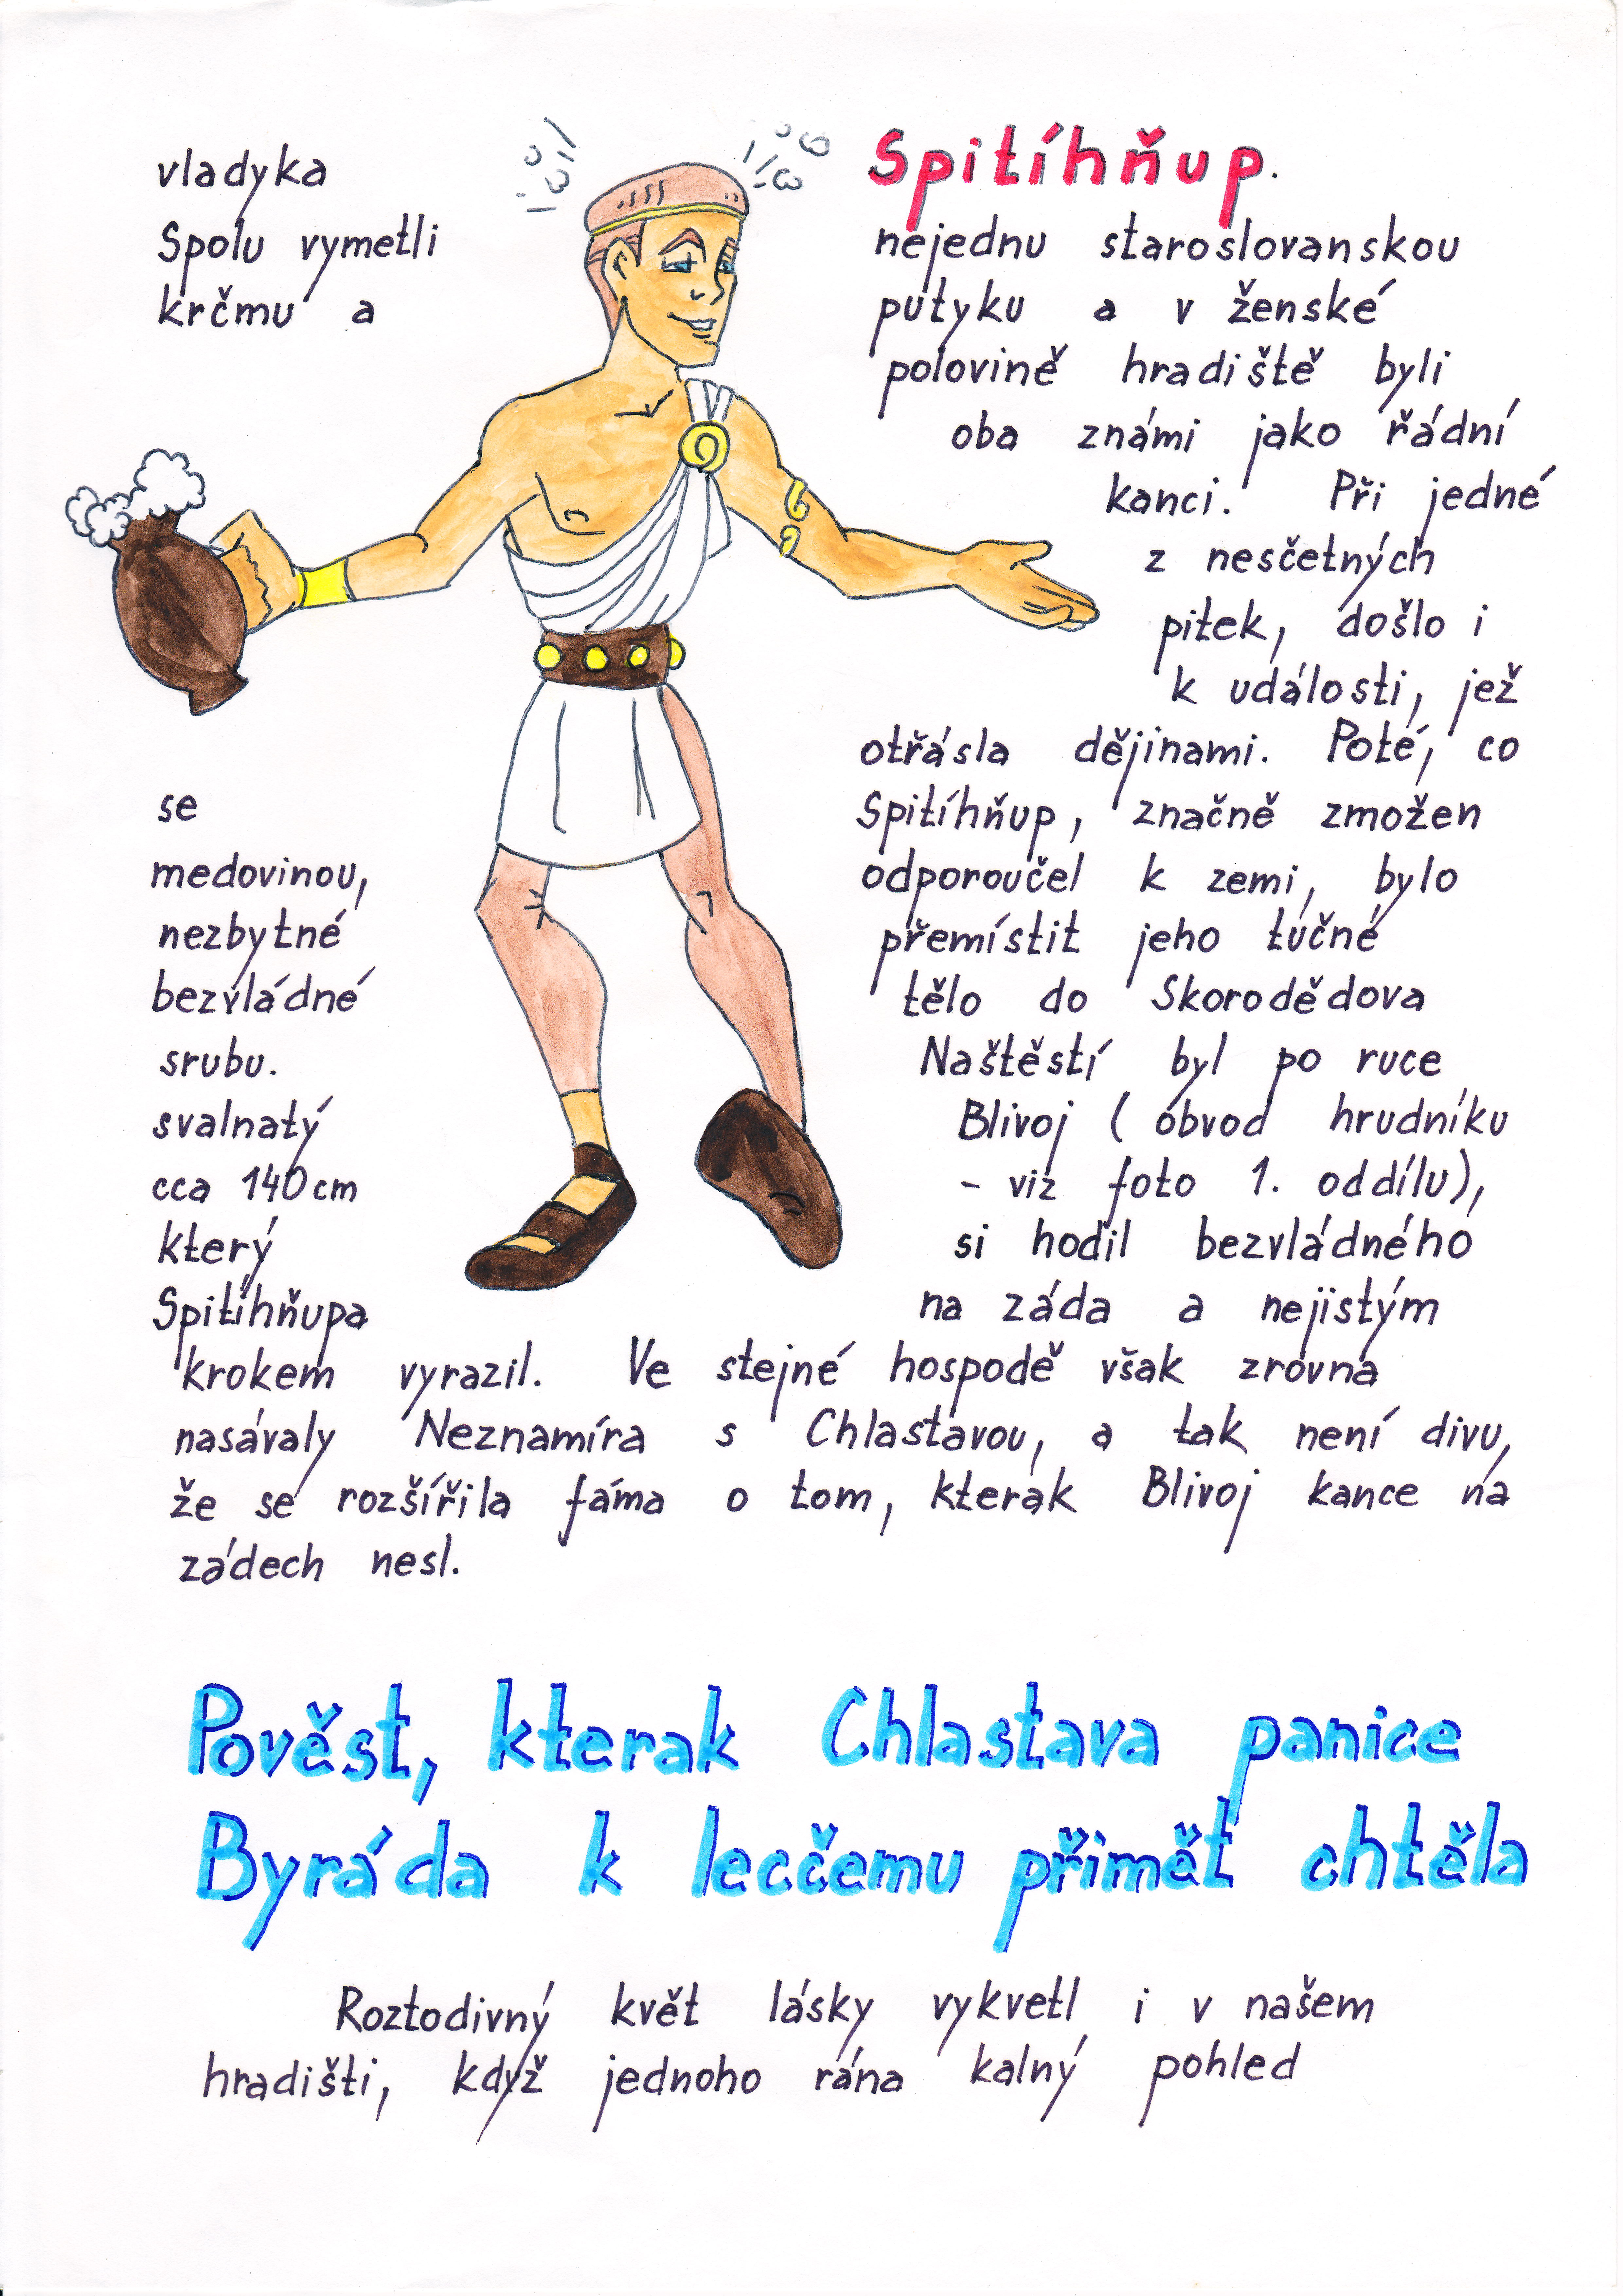 vladyka Spitíhňup.
Spolu vymetli nejednu staroslovanskou
krčmu a putyku a v ženské
polovině hradiště byli
oba známi jako řádní
kanci. Při jedné
z nesčetných
pitek, došlo i
k události, jež
otřásla dějinami. Poté, co
se Spitíhňup, značně zmožen
medovinou, odporoučel k zemi, bylo
nezbytné přemístit jeho tučné
bezvládné tělo do Skorodědova
srubu. Naštěstí byl po ruce
svalnatý Blivoj ( obvod hrudníku
cca 140cm - viz foto 1. oddílu),
který si hodil bezvládného
Spitíhňupa na záda a nejistým
krokem vyrazil. Ve stejné hospodě však zrovna
nasávaly Neznamíra s Chlastavou, a tak není divu,
že se rozšířila fáma o tom, kterak Blivoj kance na
zádech nesl.
Pověst, kterak Chlastava panice
Byráda k lecčemu přimět chtěla
Roztodivný květ lásky vykvetl i v našem
hradišti, když jednoho rána kalný pohled